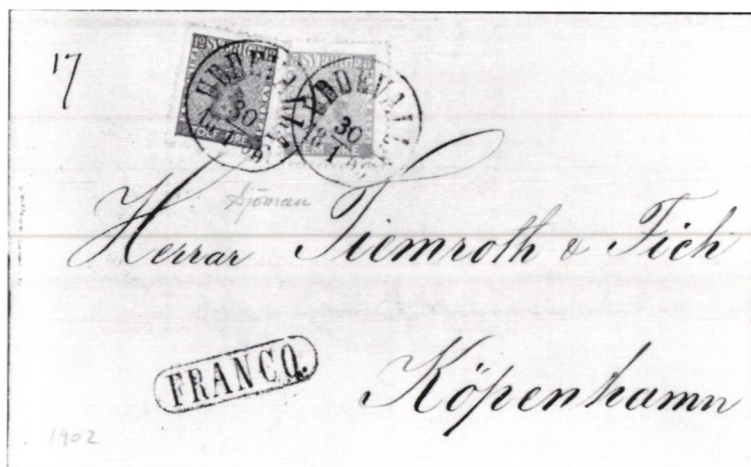 17
12 SVERIGE 12
SVERIGE
UDDEVALLA
30
1
TOLF ÖRE
UDDEVALLA
30
1
FEM ÖRE
Sjöman
Herrar Tiemroth & Fich
FRANCO.
Köpenhamn
1902